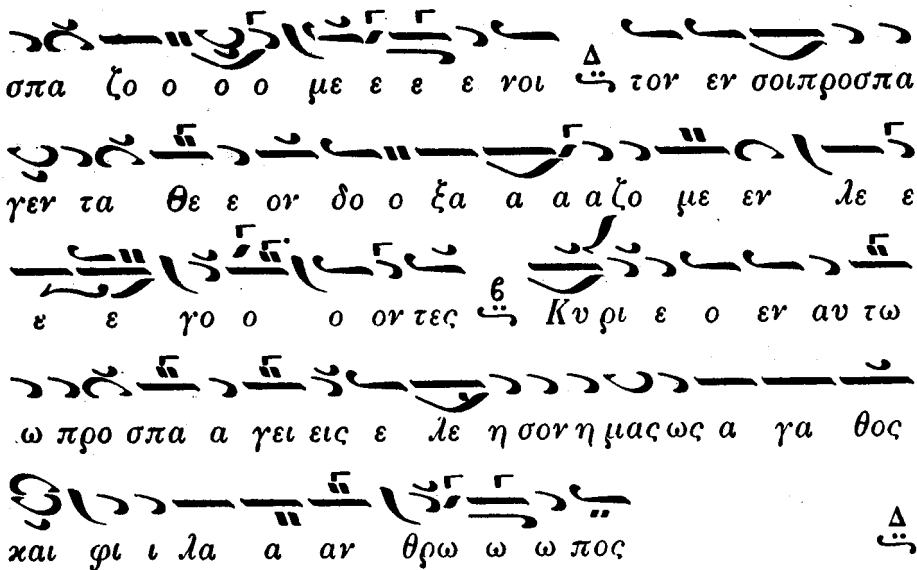 σπα ζο ο ο ο με ε ε ε νοι Δ τον εν σοιπροσπα
γεν τα Θε ε ον δο ο ξα α α αζο με εν λε ε
ε ε γο ο ο οντες β Κυ ρι ε ο εν αυ τω
ω προ σπα α γει εις ε λε η σον η μας ως α γα θος
και φι ι λα α αν θρω ω ω πος Δ